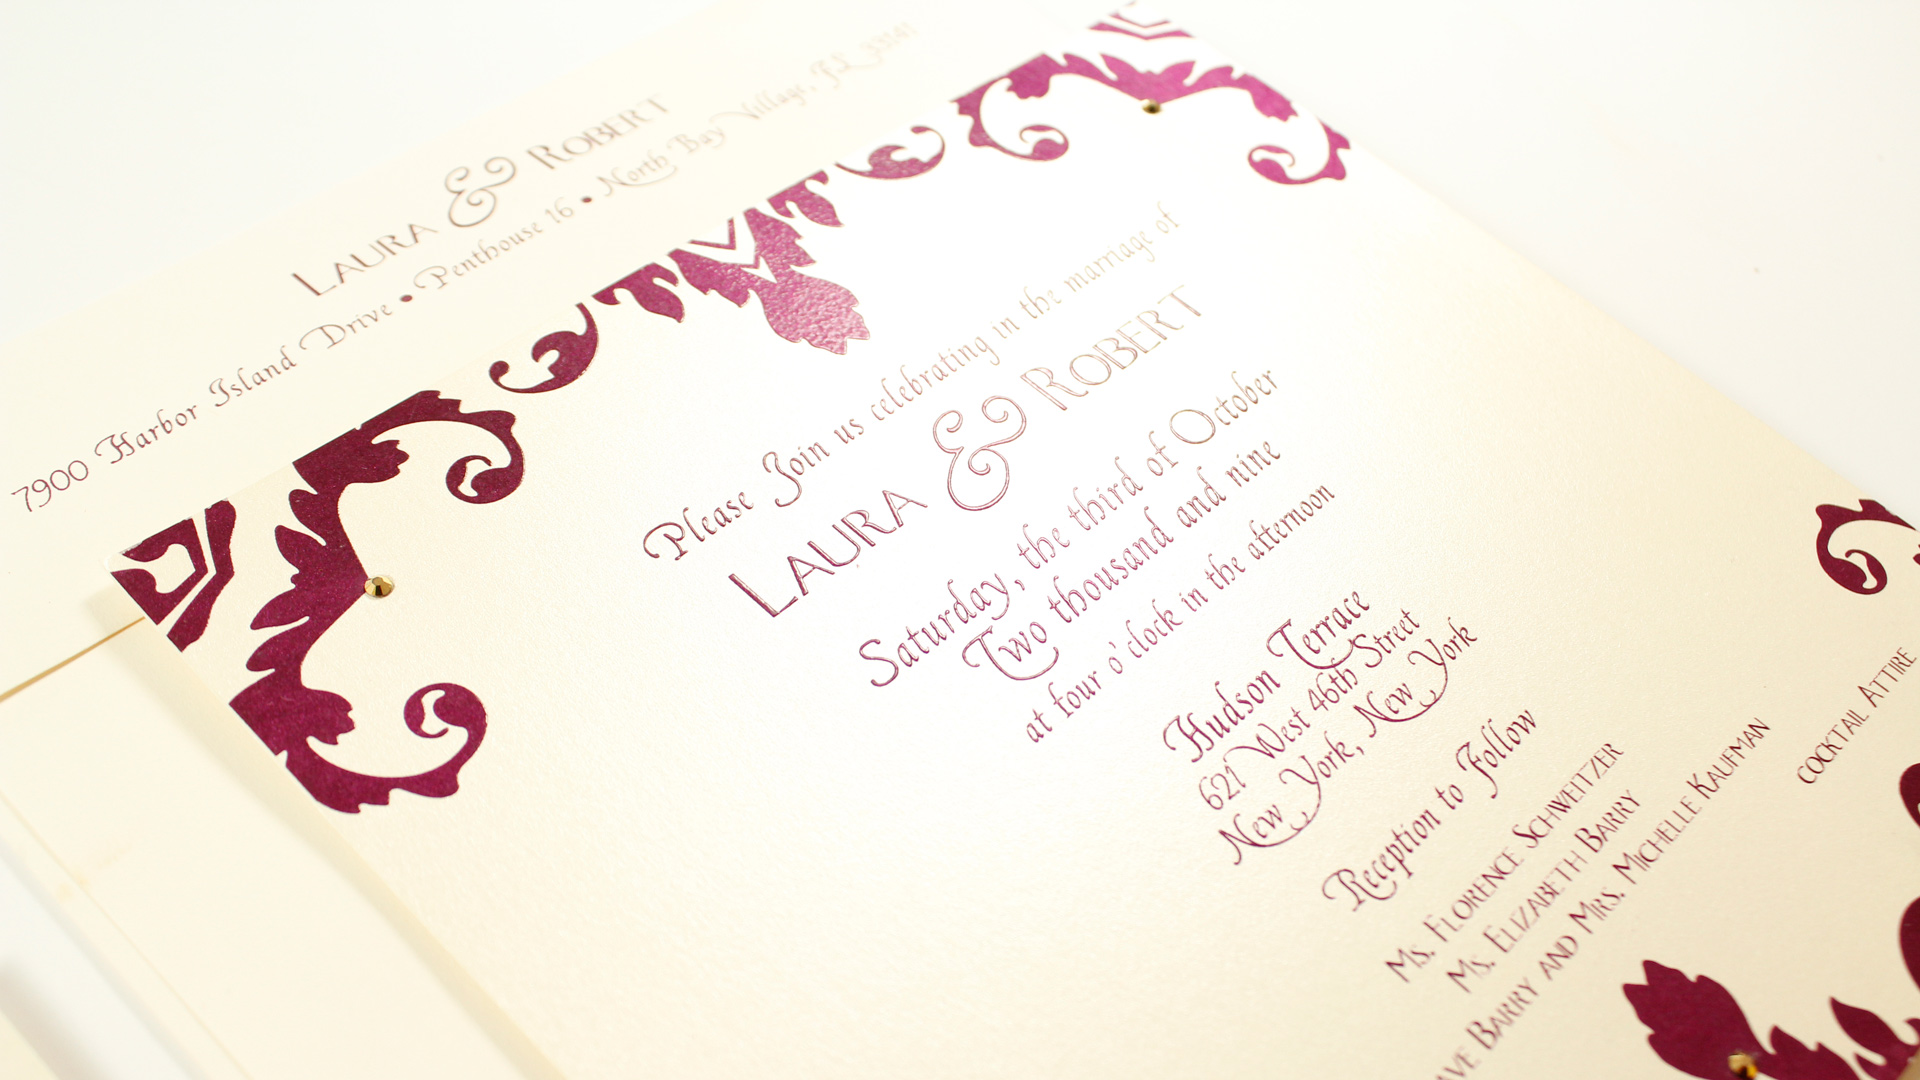 LAURA & ROBERT
7900 Harbor Island Drive • Penthouse 16 • North Bay Village, FL 33141
Please Join us celebrating in the marriage of
LAURA & ROBERT
Saturday, the third of October
Two thousand and nine
at four o'clock in the afternoon
Hudson Terrace
621 West 46th Street
New York, New York
Reception to Follow
MS. FLORENCE SCHWEITZER
MS. ELIZABETH BARRY
BARRY AND MRS. MICHELLE KAUFMAN
COCKTAIL ATTIRE